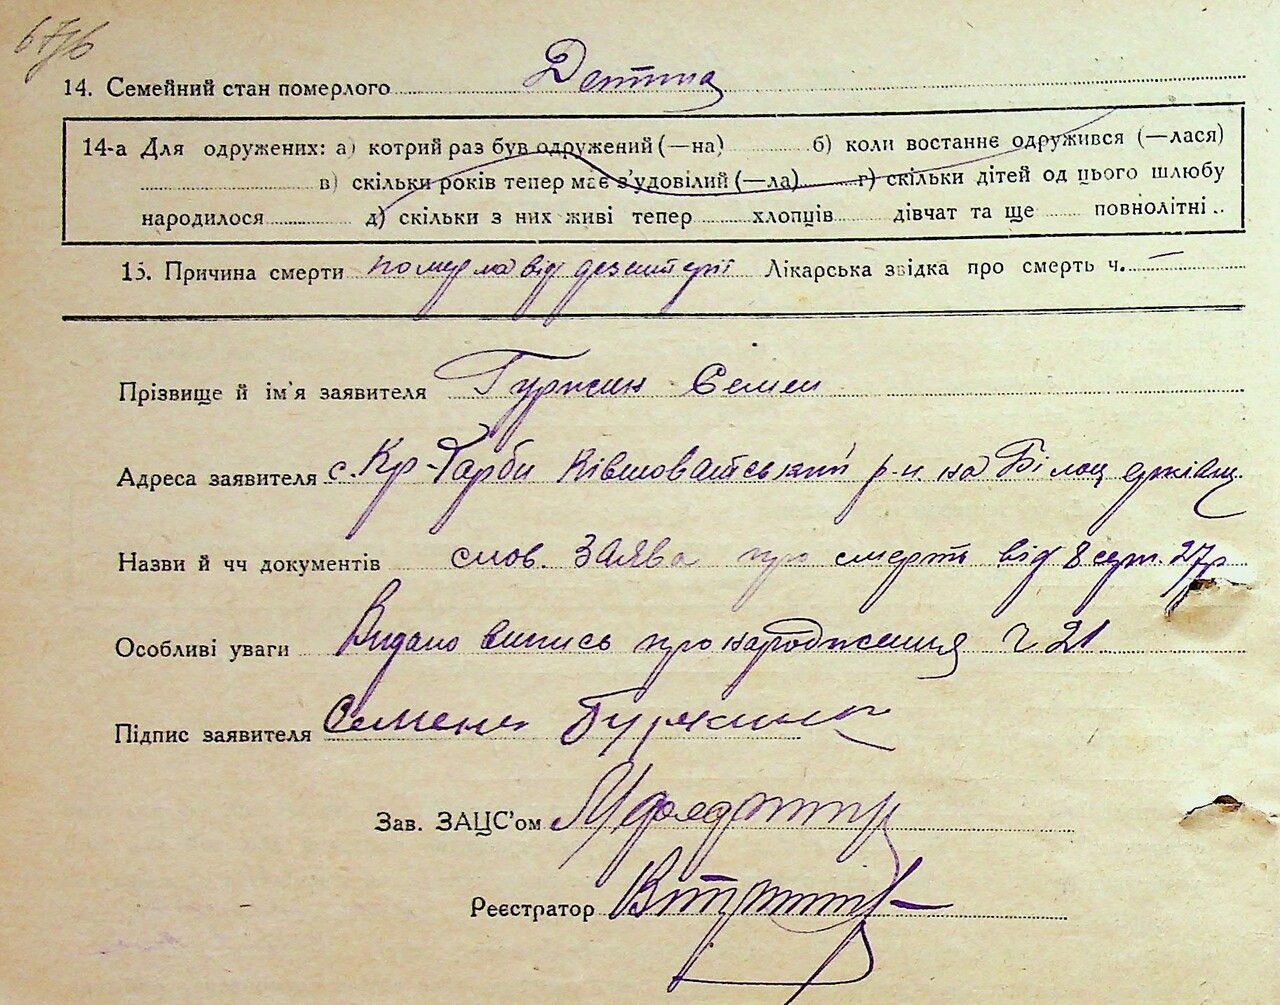 14. Семейний стан померлого Детина
14-а Для одружених: а) котрий раз був одружений (—на) б) коли востаннє одружився (—лася)
в) скільки років тепер має з'удовілий (—ла) г) скільки дітей од цього шлюбу
народилося д) скільки з них живі тепер хлопців дівчат та ще повнолітні
15. Причина смерти померла від дезентерії Лікарська звідка про смерть ч. —
Прізвище й ім'я заявителя Гуржин Семен
Адреса заявителя с. Кр-Гарби Ківшоватський р-н на Білоцерківщ
Назви й чч документів слов. заява про смерть від 8 серп. 27 р
Особливі уваги Видано випись про народження ч 21
Підпис заявителя Семен
Зав. ЗАЦС'ом
Реєстратор